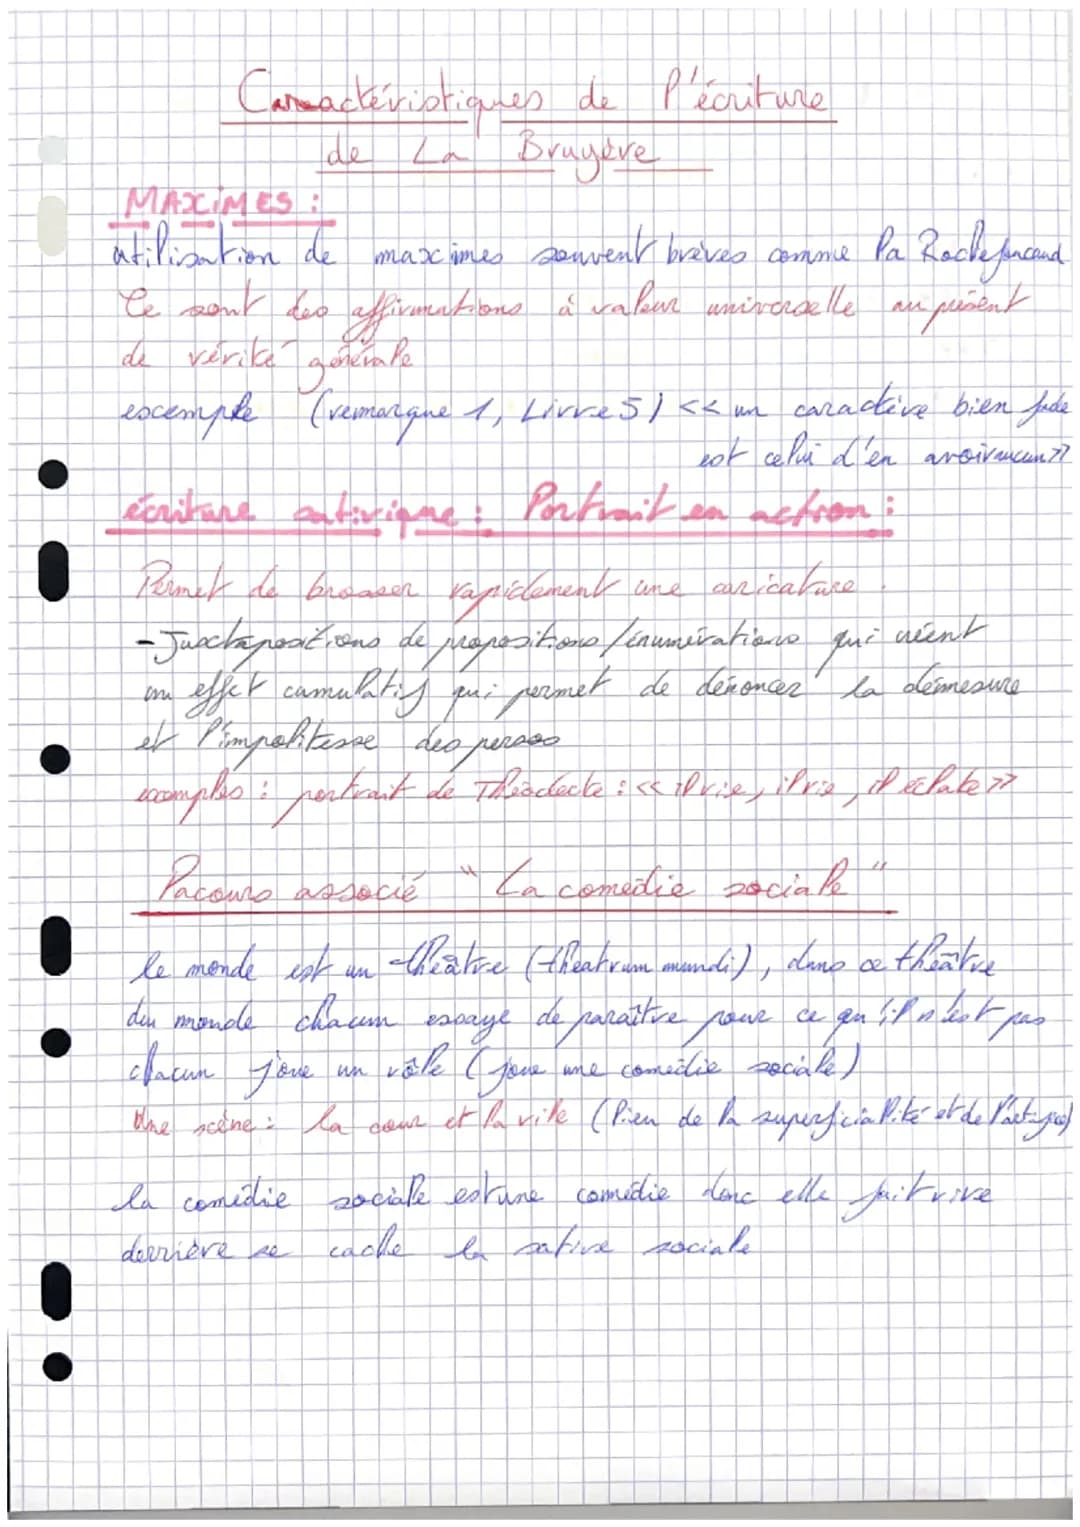 Caractéristiques de l'écriture
de La Bruyère
MAXIMES :
utilisation de maximes souvent brèves comme la Rochefoucaud
Ce sont des affirmations à valeur universelle au présent
de vérité générale
exemple (remarque 1, Livre 5) << un caractère bien fade
est celui d'en avoir aucun >>
écriture satirique : Portrait en action :
Permet de brosser rapidement une caricature.
- Juxtapositions de propositions / énumérations qui créent
un effet cumulatif qui permet de dénoncer la démesure
et l'impolitesse des persos
exemples : portrait de Théodecte : << il crie, il rie, il éclate >>
Pacours associé " La comédie sociale "
le monde est un théâtre (theatrum mundi), dans ce théâtre
du monde chacun essaye de paraître pour ce qu'il n'est pas
chacun joue un rôle (joue une comédie sociale)
Une scène : la cour et la ville (lieu de la superficialité et de l'artifice)
la comédie sociale est une comédie donc elle fait rire
derrière se cache la satire sociale